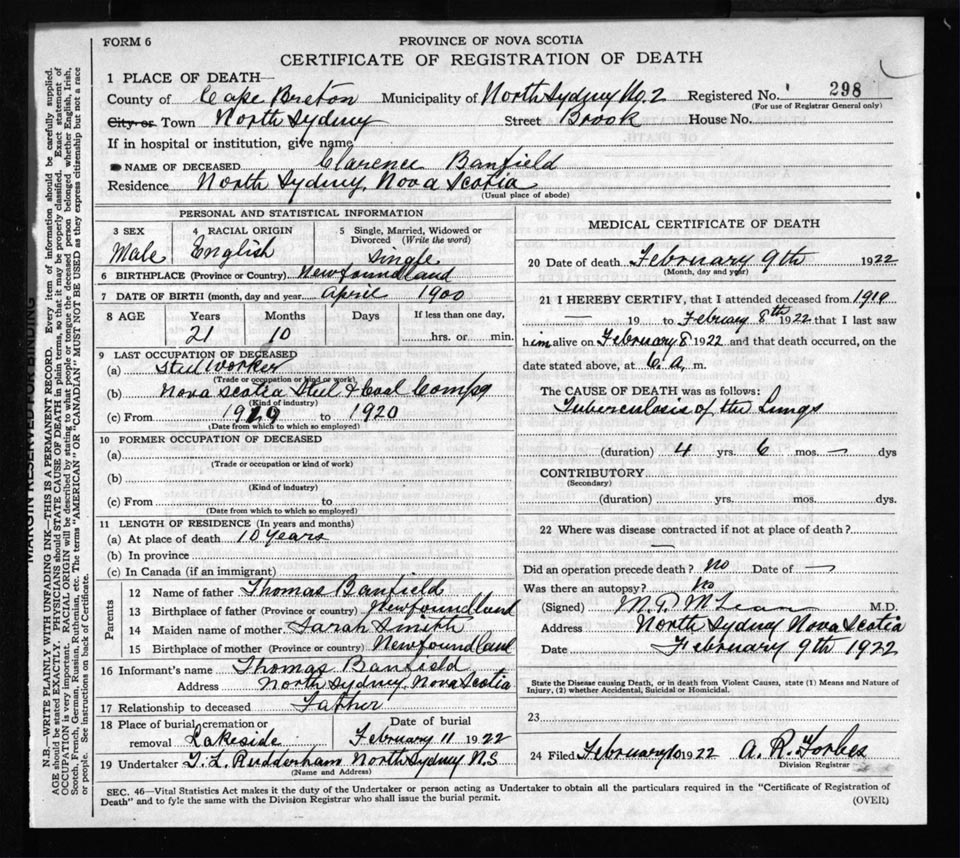 FORM 6
PROVINCE OF NOVA SCOTIA
CERTIFICATE OF REGISTRATION OF DEATH
1 PLACE OF DEATH—
County of Cape Breton Municipality of North Sydney No. 2 Registered No. 298
(For use of Registrar General only)
City or Town North Sydney Street Brook House No.
If in hospital or institution, give name
NAME OF DECEASED Clarence Banfield
Residence North Sydney, Nova Scotia
(Usual place of abode)
PERSONAL AND STATISTICAL INFORMATION
3 SEX Male
4 RACIAL ORIGIN English
5 Single, Married, Widowed or Divorced (Write the word) Single
6 BIRTHPLACE (Province or Country) Newfoundland
7 DATE OF BIRTH (month, day and year) April 1900
8 AGE Years Months Days If less than one day,
21 10 hrs. or min.
9 LAST OCCUPATION OF DECEASED
(a) Steel Worker
(Trade or occupation or kind of work)
(b) Nova Scotia Steel & Coal Compy
(Kind of industry)
(c) From 1919 to 1920
(Date from which to which so employed)
10 FORMER OCCUPATION OF DECEASED
(a)
(Trade or occupation or kind of work)
(b)
(Kind of industry)
(c) From to
(Date from which to which so employed)
11 LENGTH OF RESIDENCE (In years and months)
(a) At place of death 10 years
(b) In province
(c) In Canada (if an immigrant)
Parents
12 Name of father Thomas Banfield
13 Birthplace of father (Province or country) Newfoundland
14 Maiden name of mother Sarah Smith
15 Birthplace of mother (Province or country) Newfoundland
16 Informant's name Thomas Banfield
Address North Sydney, Nova Scotia
17 Relationship to deceased Father
18 Place of burial, cremation or removal Lakeside
Date of burial February 11 1922
19 Undertaker T. L. Rudderham North Sydney N.S
(Name and Address)
MEDICAL CERTIFICATE OF DEATH
20 Date of death February 9th 1922
(Month, day and year)
21 I HEREBY CERTIFY, that I attended deceased from 1919
— 19 to February 8th 1922 that I last saw
him alive on February 8 1922 and that death occurred, on the
date stated above, at 6 a. m.
The CAUSE OF DEATH was as follows:
Tuberculosis of the Lungs
(duration) 4 yrs. 6 mos. — dys
CONTRIBUTORY
(Secondary)
(duration) yrs. mos. dys.
22 Where was disease contracted if not at place of death?
—
Did an operation precede death? No Date of —
Was there an autopsy? No
(Signed) M. T. McLean M.D.
Address North Sydney Nova Scotia
Date February 9th 1922
State the Disease causing Death, or in death from Violent Causes, state (1) Means and Nature of
Injury, (2) whether Accidental, Suicidal or Homicidal.
23
24 Filed February 10 1922 A. R. Forbes
Division Registrar
SEC. 46—Vital Statistics Act makes it the duty of the Undertaker or person acting as Undertaker to obtain all the particulars required in the "Certificate of Registration of
Death" and to fyle the same with the Division Registrar who shall issue the burial permit.
(OVER)
MARGIN RESERVED FOR BINDING
N.B.—WRITE PLAINLY WITH UNFADING INK—THIS IS A PERMANENT RECORD. Every item of information should be carefully supplied.
AGE should be stated EXACTLY. PHYSICIANS should STATE CAUSE OF DEATH in plain terms, so that it may be properly classified. Exact statement of
OCCUPATION is very important. RACIAL ORIGIN will be described by stating to what people or tongue the deceased person belonged whether English, Irish,
Scotch, French, German, Russian, Ruthenian, etc. The terms "AMERICAN" OR "CANADIAN" MUST NOT BE USED as they express citizenship but not a race
or people. See instructions on back of Certificate.